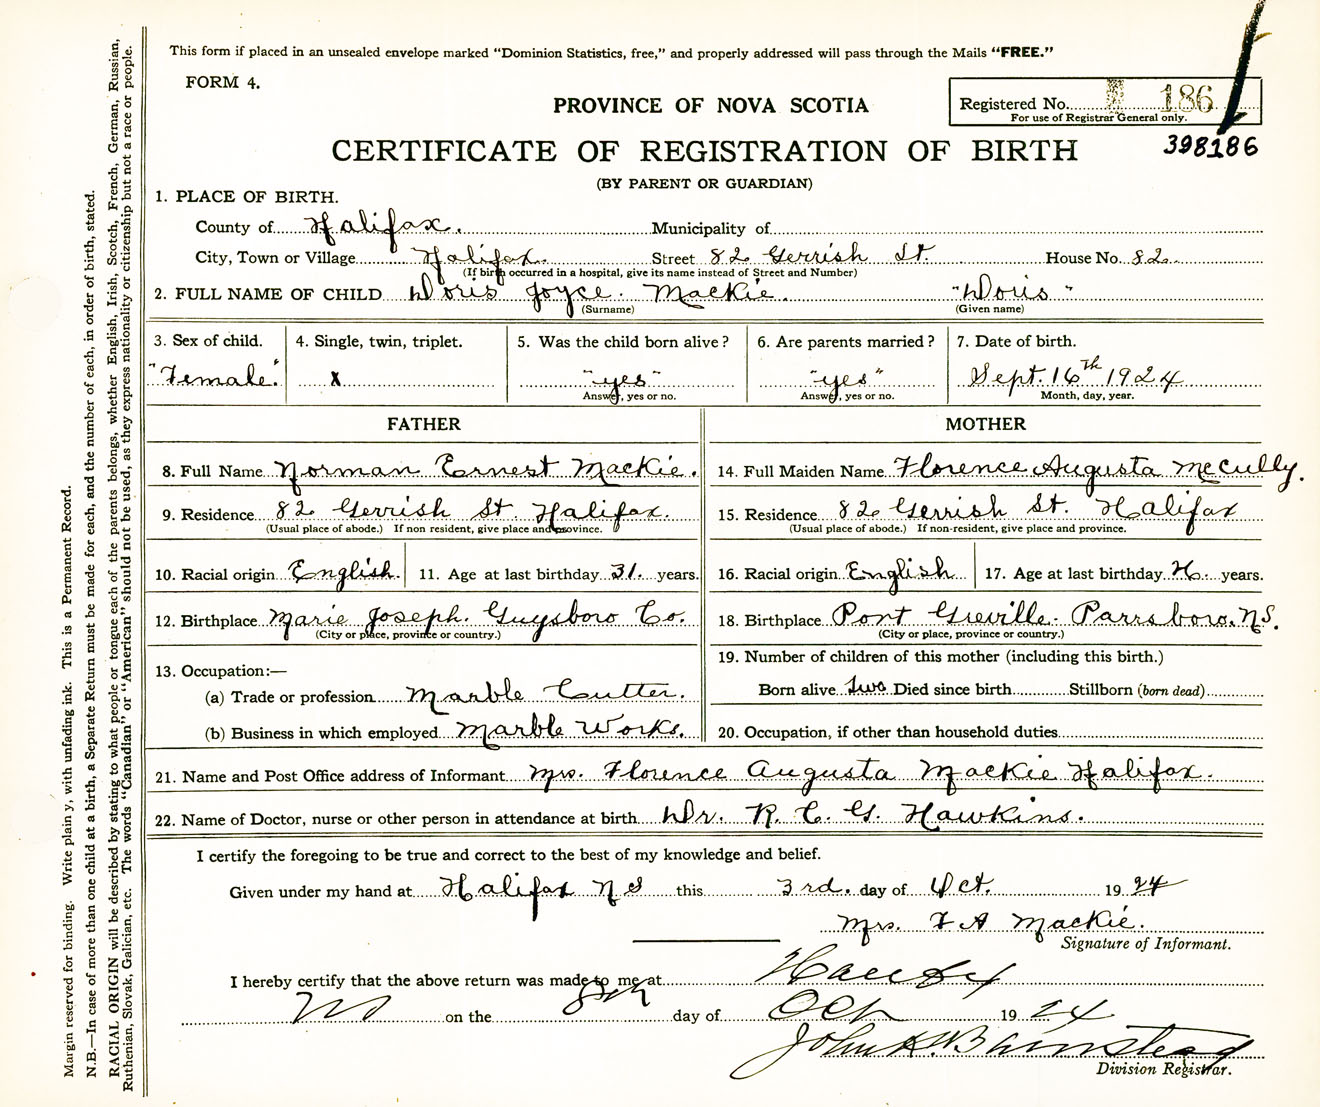 This form if placed in an unsealed envelope marked “Dominion Statistics, free,” and properly addressed will pass through the Mails “FREE.”
FORM 4.
PROVINCE OF NOVA SCOTIA
Registered No. 186
For use of Registrar General only.
398186
CERTIFICATE OF REGISTRATION OF BIRTH
(BY PARENT OR GUARDIAN)
1. PLACE OF BIRTH.
County of Halifax. Municipality of
City, Town or Village Halifax. Street 82 Gerrish St. House No. 82.
(If birth occurred in a hospital, give its name instead of Street and Number)
2. FULL NAME OF CHILD Doris Joyce. Mackie. "Doris"
(Surname) (Given name)
3. Sex of child. 4. Single, twin, triplet. 5. Was the child born alive? 6. Are parents married? 7. Date of birth.
"Female." X "yes" "yes" Sept. 16th 1924
Answer, yes or no. Answer, yes or no. Month, day, year.
FATHER MOTHER
8. Full Name Norman Ernest Mackie. 14. Full Maiden Name Florence Augusta McCully.
9. Residence 82 Gerrish St. Halifax. 15. Residence 82 Gerrish St. Halifax
(Usual place of abode.) If non resident, give place and province. (Usual place of abode.) If non-resident, give place and province.
10. Racial origin English. 11. Age at last birthday 31. years. 16. Racial origin English 17. Age at last birthday years.
12. Birthplace Marie Joseph. Guysboro Co. 18. Birthplace Port Greville. Parrsboro. N.S.
(City or place, province or country.) (City or place, province or country.)
13. Occupation:— 19. Number of children of this mother (including this birth.)
(a) Trade or profession Marble Cutter. Born alive two Died since birth Stillborn (born dead)
(b) Business in which employed Marble Works. 20. Occupation, if other than household duties
21. Name and Post Office address of Informant Mrs. Florence Augusta Mackie Halifax.
22. Name of Doctor, nurse or other person in attendance at birth Dr. R. C. G. Hawkins.
I certify the foregoing to be true and correct to the best of my knowledge and belief.
Given under my hand at Halifax N S this 3rd. day of Oct. 1924
Mrs. F A Mackie.
Signature of Informant.
I hereby certify that the above return was made to me at Halifax
NS on the 8th day of Oct 1924
John A. Barnstead
Division Registrar.
Margin reserved for binding. Write plain y, with unfading ink. This is a Permanent Record.
N.B.—In case of more than one child at a birth, a Separate Return must be made for each, and the number of each, in order of birth, stated.
RACIAL ORIGIN will be described by stating to what people or tongue each of the parents belongs, whether English, Irish, Scotch, French, German, Russian,
Ruthenian, Slovak, Galician, etc. The words “Canadian” or “American” should not be used, as they express nationality or citizenship but not a race or people.